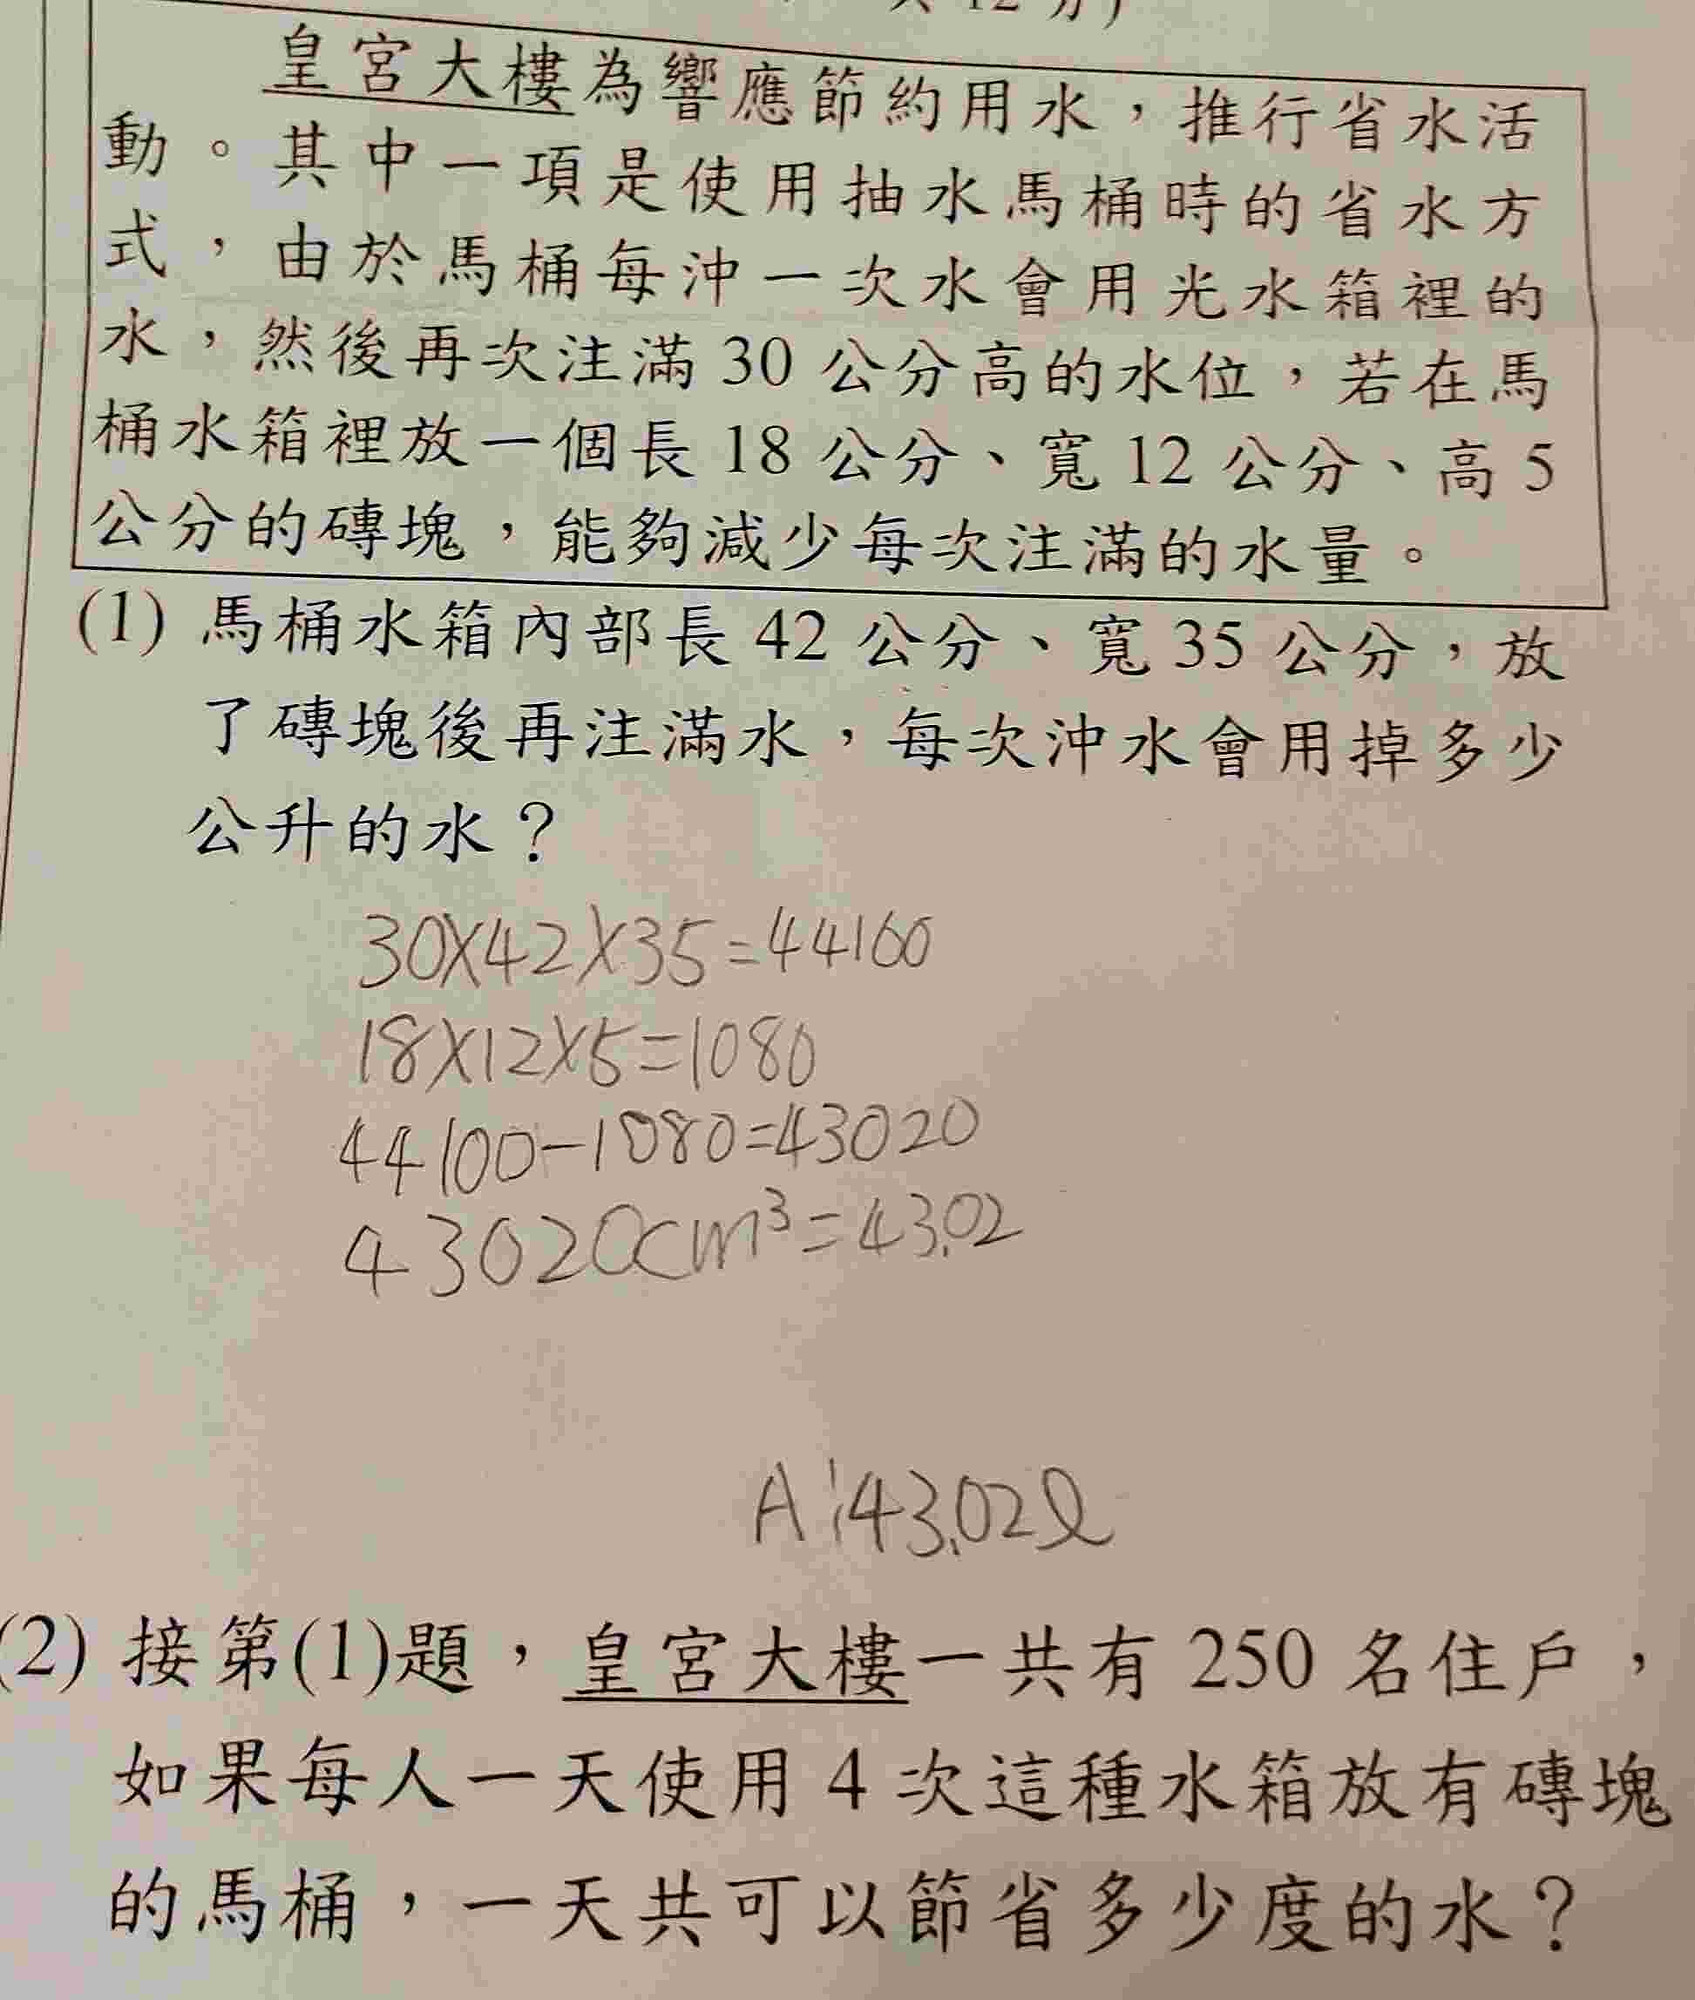 皇宮大樓為響應節約用水，推行省水活
動。其中一項是使用抽水馬桶時的省水方
式，由於馬桶每沖一次水會用光水箱裡的
水，然後再次注滿 30 公分高的水位，若在馬
桶水箱裡放一個長 18 公分、寬 12 公分、高 5
公分的磚塊，能夠減少每次注滿的水量。
(1) 馬桶水箱內部長 42 公分、寬 35 公分，放
了磚塊後再注滿水，每次沖水會用掉多少
公升的水？
30X42X35=44100
18X12X5=1080
44100-1080=43020
43020cm³=43.02
A:43.02ℓ
(2) 接第(1)題，皇宮大樓一共有 250 名住戶，
如果每人一天使用 4 次這種水箱放有磚塊
的馬桶，一天共可以節省多少度的水？